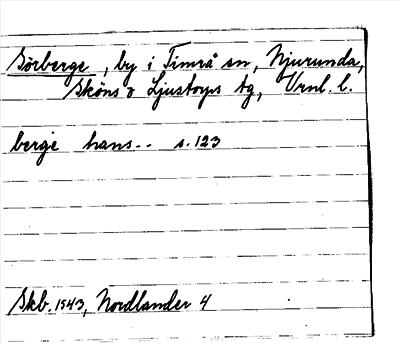 Sörberge, by i Timrå sn, Njurunda,
Sköns o Ljustorps tg, Vrnl. l.
berge hans.. s. 123
Skb. 1543, Nordlander 4